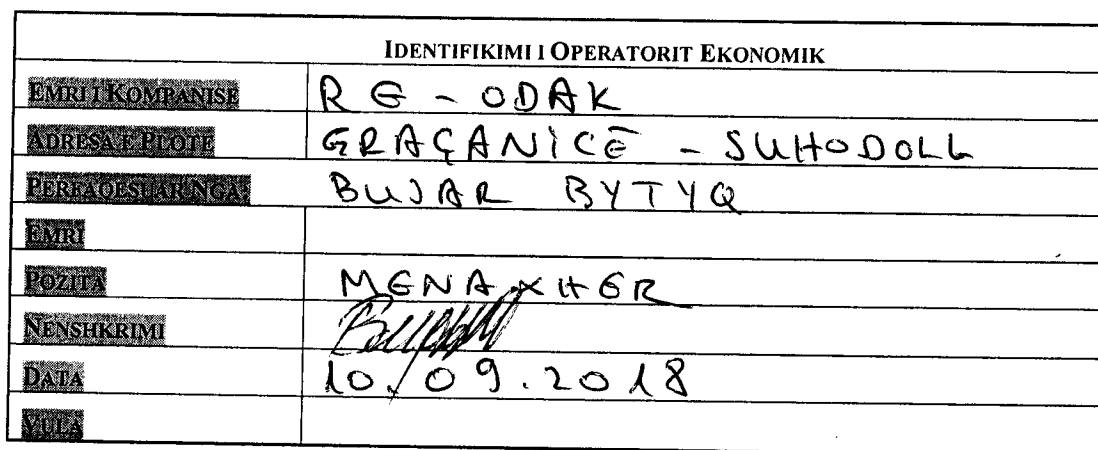 IDENTIFIKIMI I OPERATORIT EKONOMIK
EMRI I KOMPANISE RE - ODAK
ADRESA E PLOTE GRAÇANICË - SUHODOLL
PERFAQESUAR NGA: BUJAR BYTYQ
EMRI
POZITA MENAXHER
NENSHKRIMI
DATA 10.09.2018
VULA